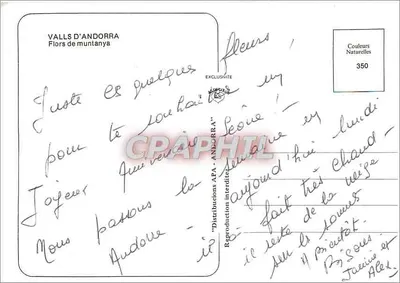 VALLS D'ANDORRA
Flors de muntanya
EXCLUSIVITE
Couleurs
Naturelles
350
Juste ces quelques fleurs,
pour te souhaiter un
joyeux Anniversaire
Nous passons la semaine en
Andorre - il
aujourd'hui lundi
fait très chaud -
il reste de la neige
sur les
A bientôt.
Bisous.
Janine et
Alex.
"Distribucions APA - ANDORRA"
Reproduction interdite
CPARAMA